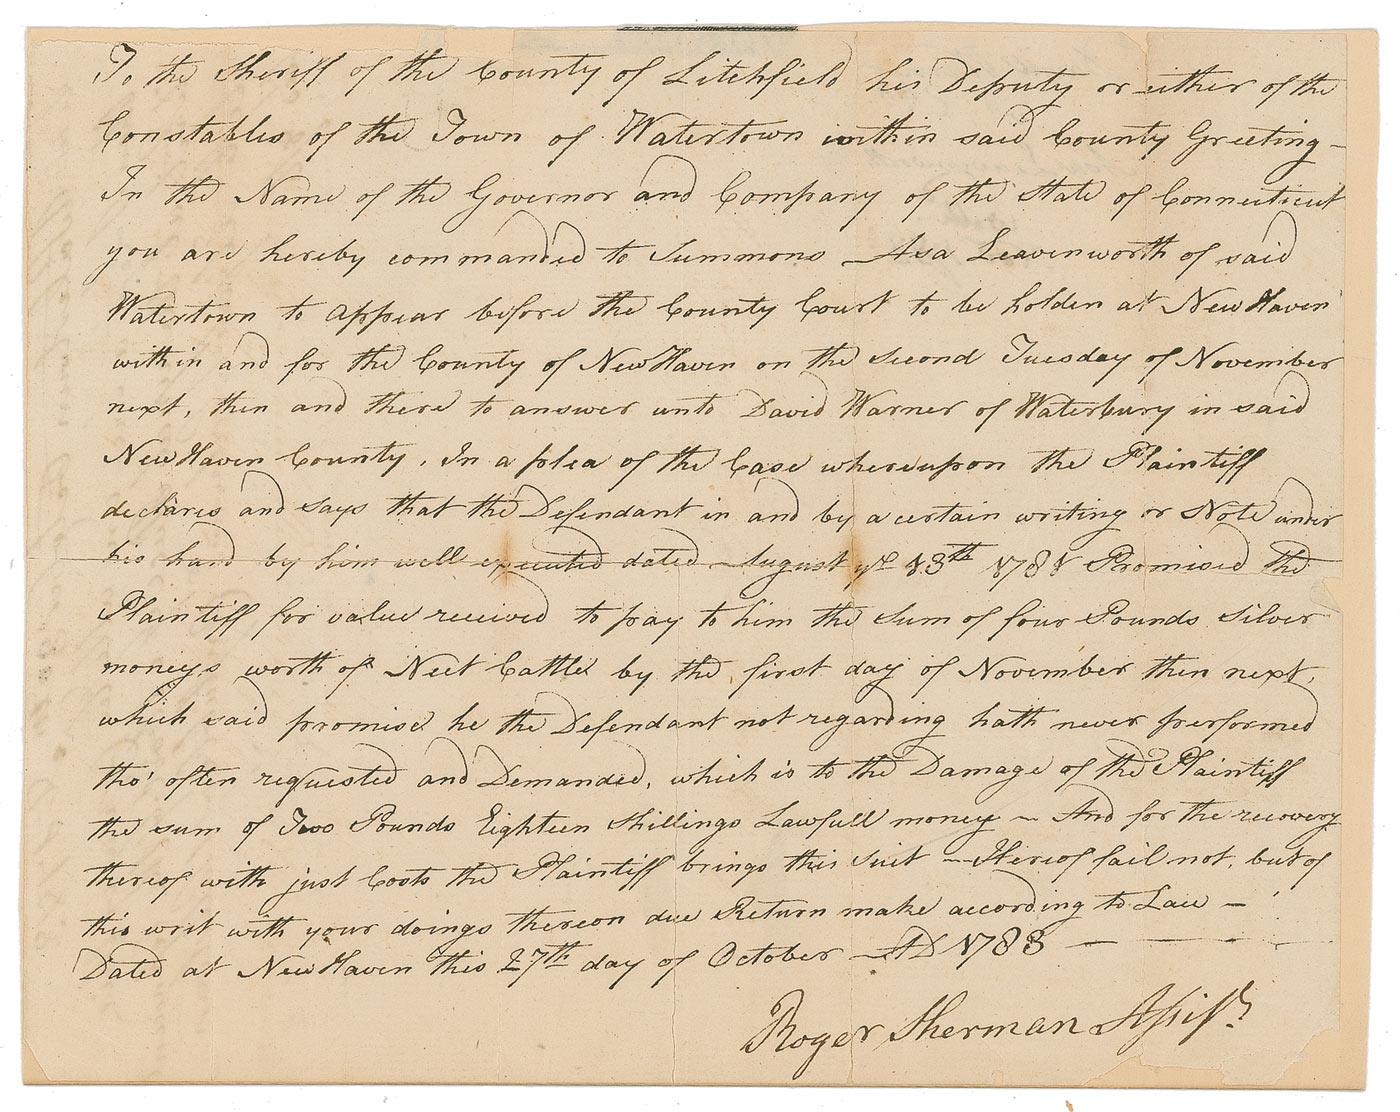 To the Sheriff of the County of Litchfield his Deputy or either of the
Constables of the Town of Watertown within said County Greeting —
In the Name of the Governor and Company of the State of Connecticut
you are hereby commanded to Summons Asa Leavenworth of said
Watertown to appear before the County Court to be holden at New Haven
within and for the County of New Haven on the second Tuesday of November
next, then and there to answer unto David Warner of Waterbury in said
New Haven County, In a plea of the Case whereupon the Plaintiff
declares and says that the Defendant in and by a certain writing or Note under
his hand by him well executed dated August ye 13th 1781 Promised the
Plaintiff for value received to pay to him the Sum of four Pounds Silver
moneys worth of Neet Cattle by the first day of November then next,
which said promise he the Defendant not regarding hath never performed
tho' often requested and Demanded, which is to the Damage of the Plaintiff
the sum of Two Pounds Eighteen Shillings Lawfull money – And for the recovery
thereof with just Costs the Plaintiff brings this suit – Hereof fail not, but of
this writ with your doings thereon due Return make according to Law –
Dated at New Haven this 27th day of October AD 1783 —
Roger Sherman Assist.